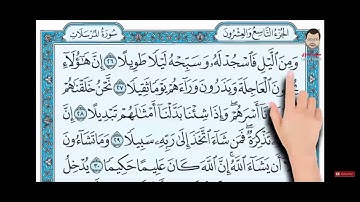 الجزء التاسع والعشرون
سورة المرسلات
ومن الليل فاسجد له وسبحه ليلا طويلا ٢٦ إن هؤلاء
العاجلة ويذرون وراءهم يوما ثقيلا ٢٧ نحن خلقناهم
أسرهم وإذا شئنا بدلنا أمثالهم تبديلا ٢٨
تذكرة فمن شاء اتخذ إلى ربه سبيلا ٢٩ وما تشاءون
أن يشاء الله إن الله كان عليما حكيما ٣٠ يدخل